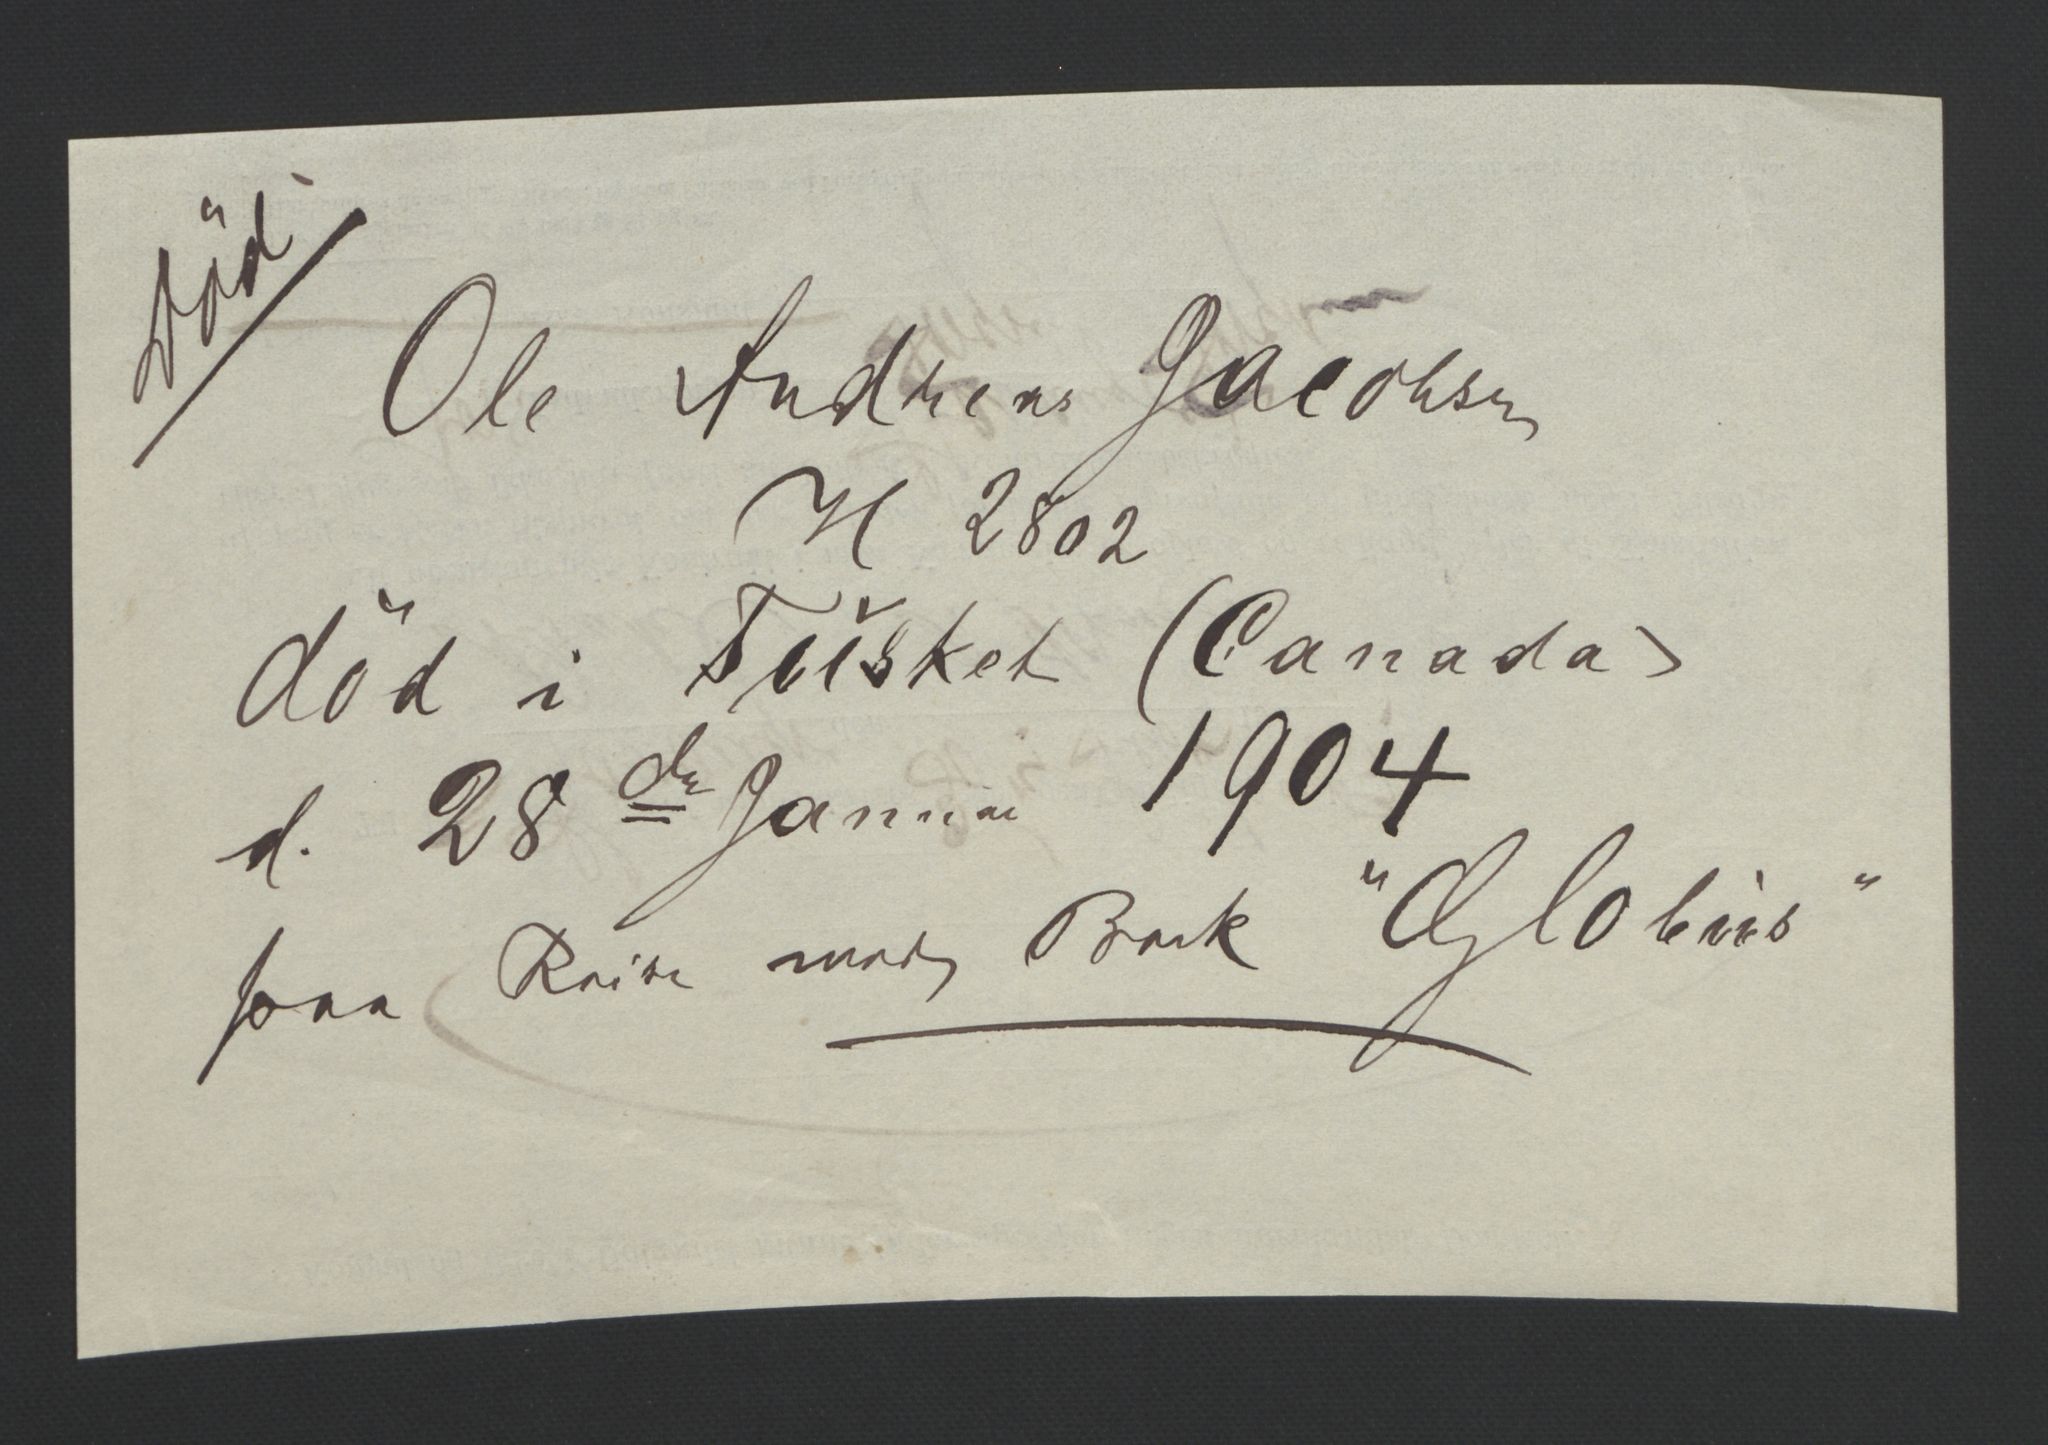 Död
Ole Andreas Jacobsen
N 2802
död i Tusket (Canada)
d. 28 de Januar 1904
paa Reise med Bark "Globus"